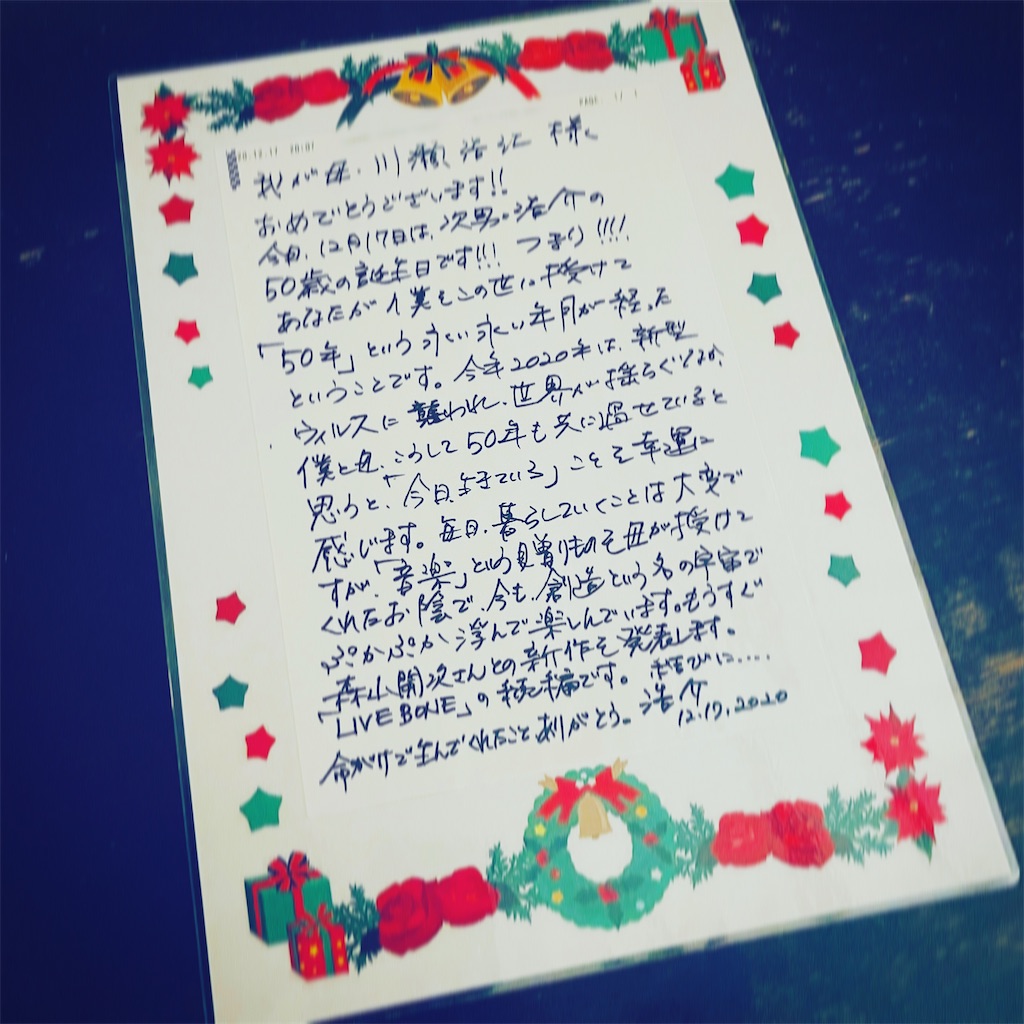 20-12-17 20:07 PAGE. 1/ 1
我が母、川瀬浩江 様へ
おめでとうございます!!
今日、12月17日は、次男。浩介の
50歳の誕生日です!!! つまり!!!!
あなたが僕をこの世に授けて
「50年」という永い永い年月が経った
ということです。今年2020年は、新型
ウィルスに襲われ、世界が揺らぐなか、
僕と母、こうして50年も共に過せていると
思うと、「今日、生きている」ことをこそ幸運に
感じます。毎日、暮らしていくことは大変で
すが、「音楽」という贈りものを母が授けて
くれたお陰で、今も、創造という名の宇宙で
ぷかぷか浮んで楽しんでいます。もうすぐ
森山開次さんとの新作を発表します。
「LIVE BONE」の続編です。 結びに.....
命がけで生んでくれたこと、ありがとう。浩介
12.17,2020